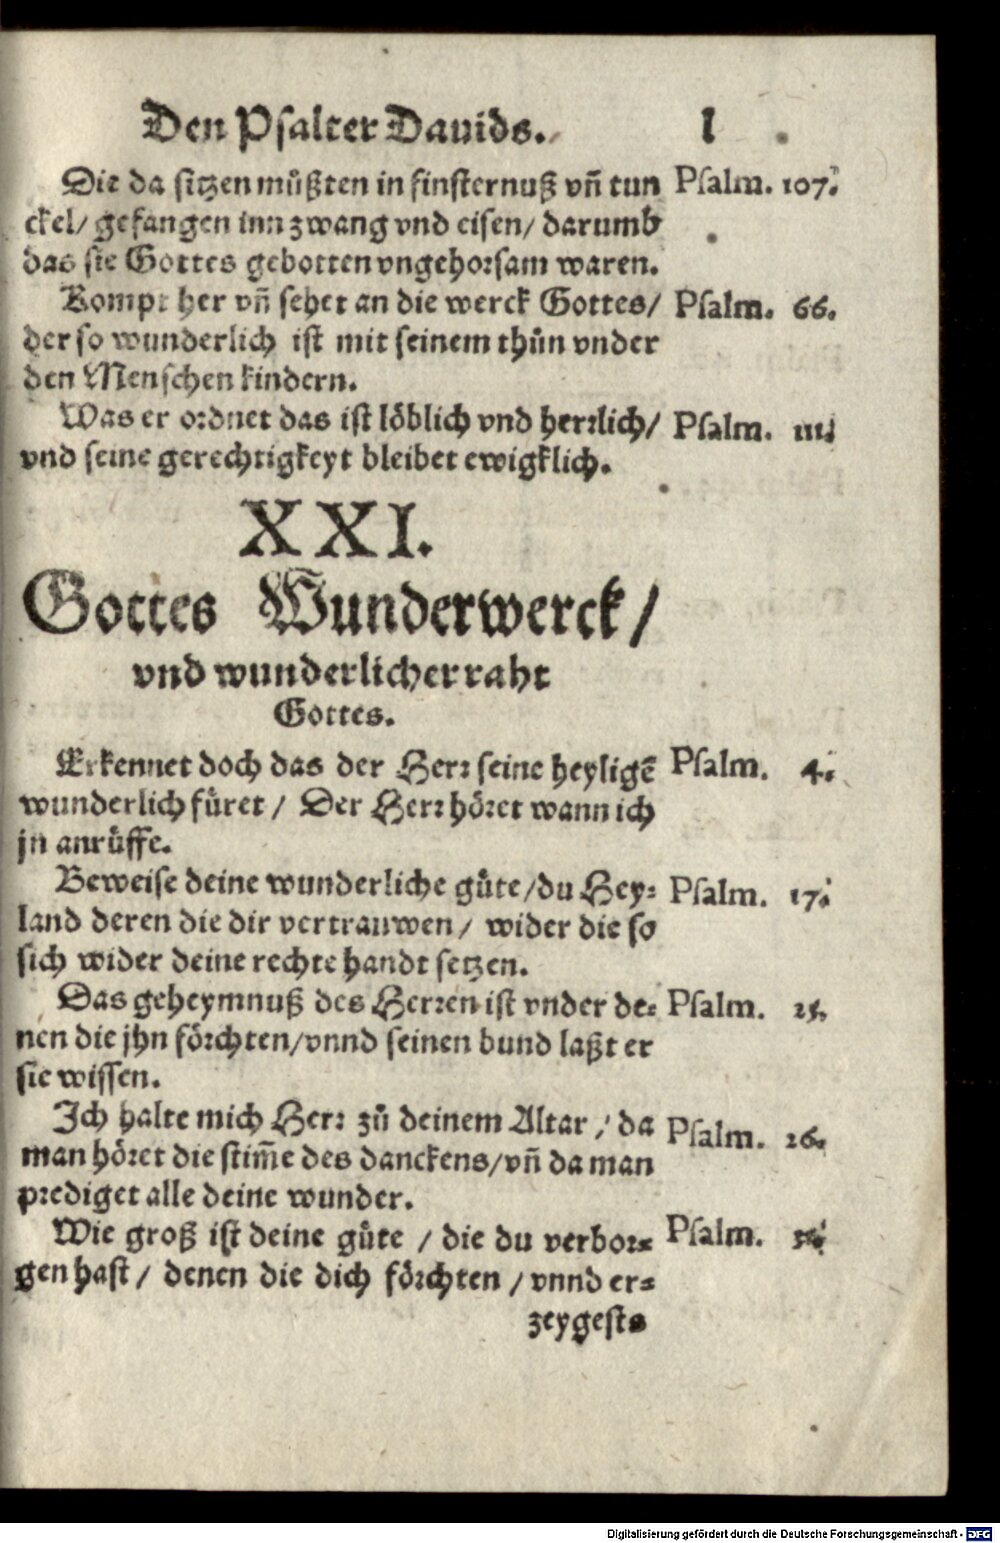 Den Psalter Dauids. l
Die da sitzen müßten in finsternuß vñ tun Psalm. 107.
ckel/ gefangen inn zwang vnd eisen/ darumb
das sie Gottes gebotten vngehorsam waren.
Kompt her vñ sehet an die werck Gottes/ Psalm. 66.
der so wunderlich ist mit seinem thůn vnder
den Menschen kindern.
Was er ordnet das ist löblich vnd herrlich/ Psalm. 111
vnd seine gerechtigkeyt bleibet ewigklich.
XXI.
Gottes Wunderwerck/
vnd wunderlicher raht
Gottes.
Erkennet doch das der Herr seine heyligẽ Psalm. 4.
wunderlich füret / Der Herr höret wann ich
jn anrüffe.
Beweise deine wunderliche güte/du Hey- Psalm. 17.
land deren die dir vertrauwen / wider die so
sich wider deine rechte handt setzen.
Das geheymnuß des Herren ist vnder de- Psalm. 25.
nen die jhn förchten/vnnd seinen bund laßt er
sie wissen.
Ich halte mich Herr zů deinem Altar / da Psalm. 26.
man höret die stim̃e des danckens/vñ da man
prediget alle deine wunder.
Wie groß ist deine güte / die du verbor- Psalm.
gen hast / denen die dich förchten / vnnd er-
zeygests
Digitalisierung gefördert durch die Deutsche Forschungsgemeinschaft - DFG